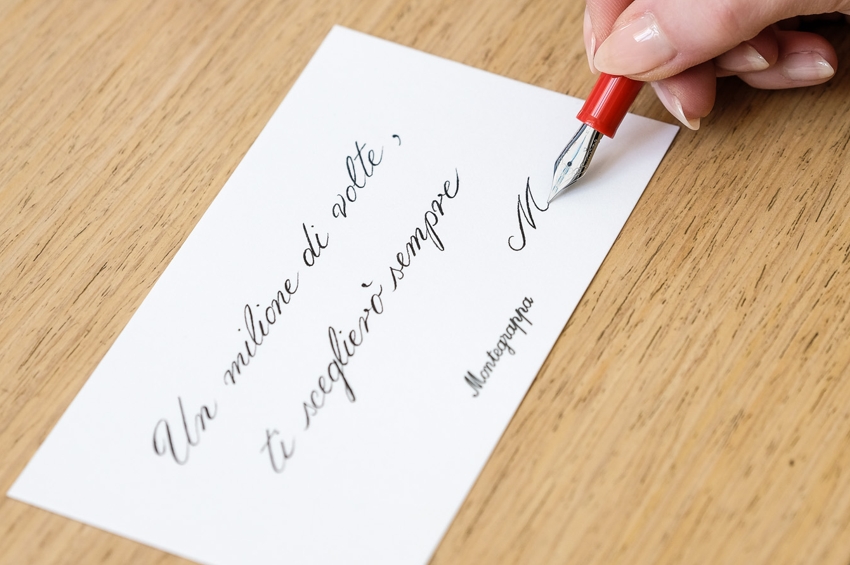 Un milione di volte,
ti sceglierò sempre
M
Montegrappa